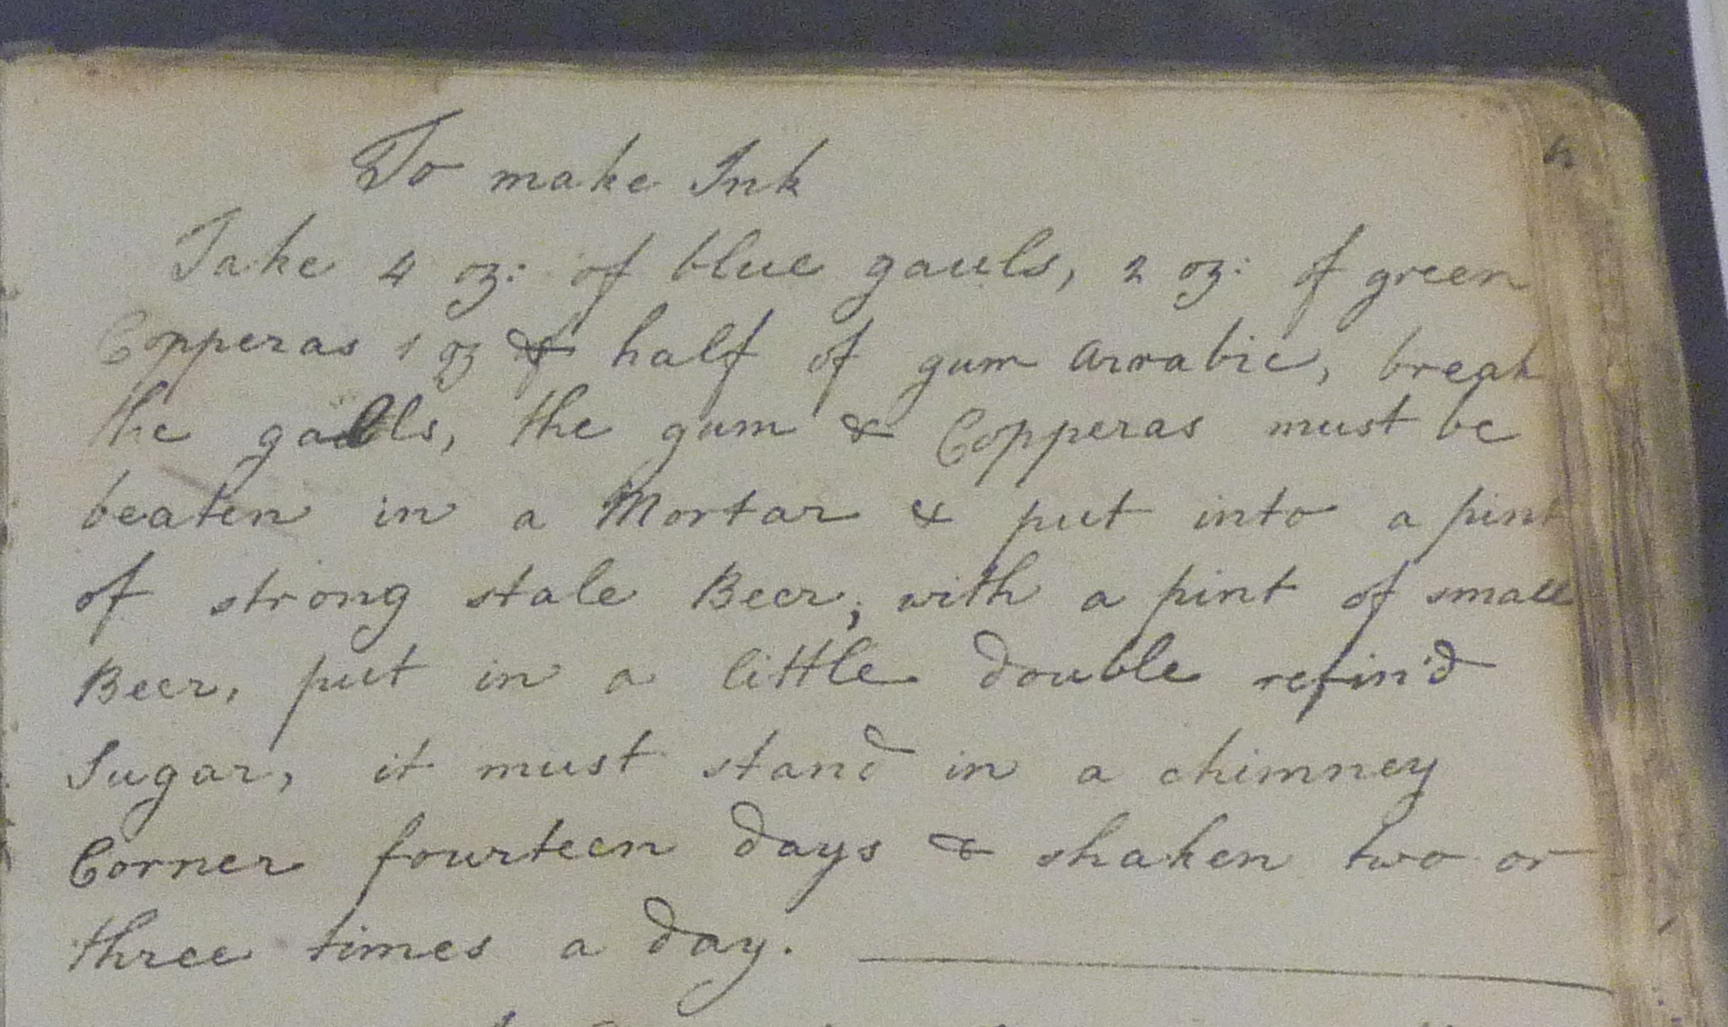 To make Ink
Take 4 oz: of blue gauls, 2 oz: of green
Copperas 1 oz & half of gum arrabic, break
the galls, the gum & Copperas must be
beaten in a Mortar & put into a pint
of strong stale Beer, with a pint of small
Beer, put in a little double refin'd
Sugar, it must stand in a chimney
Corner fourteen days & shaken two or
three times a day.